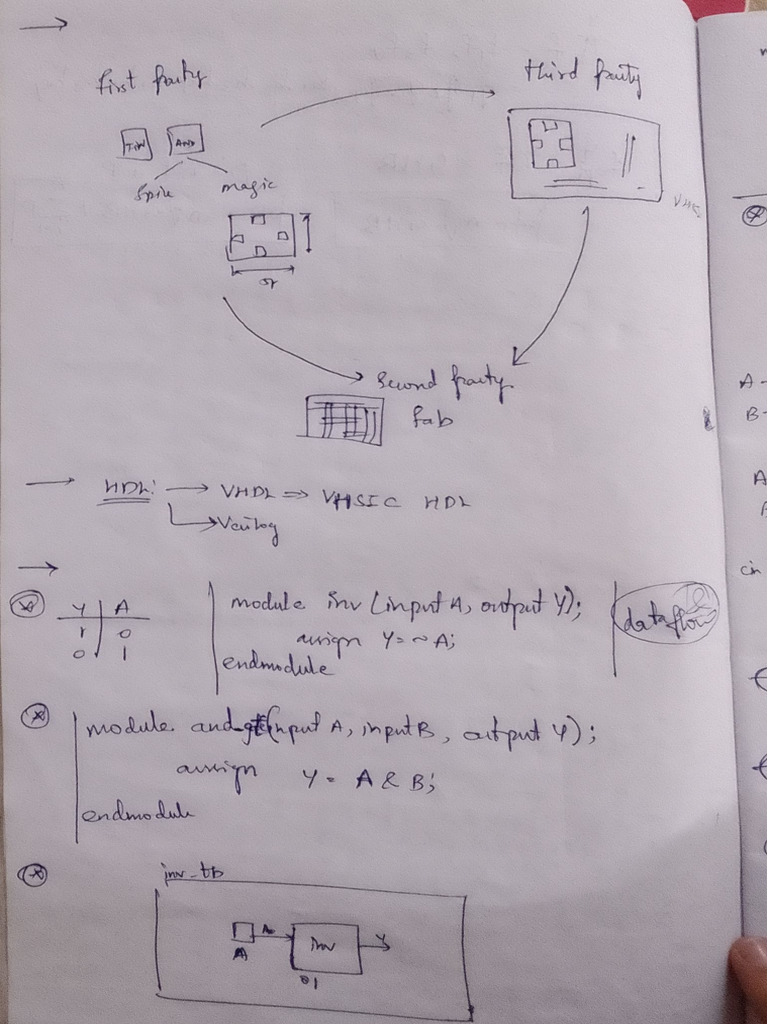 →
first party
third party
INV AND
Spice magic
Second party
fab
→ HDL: → VHDL ⇒ VHSIC HDL
→ Verilog
→
Y | A
1 | 0
0 | 1
module inv (input A, output Y);
assign Y = ~A;
endmodule
dataflow
module and_gt(input A, input B, output Y);
assign Y = A & B;
endmodule
inv_tb
A
A
inv
Y
01
A
B
A
cin